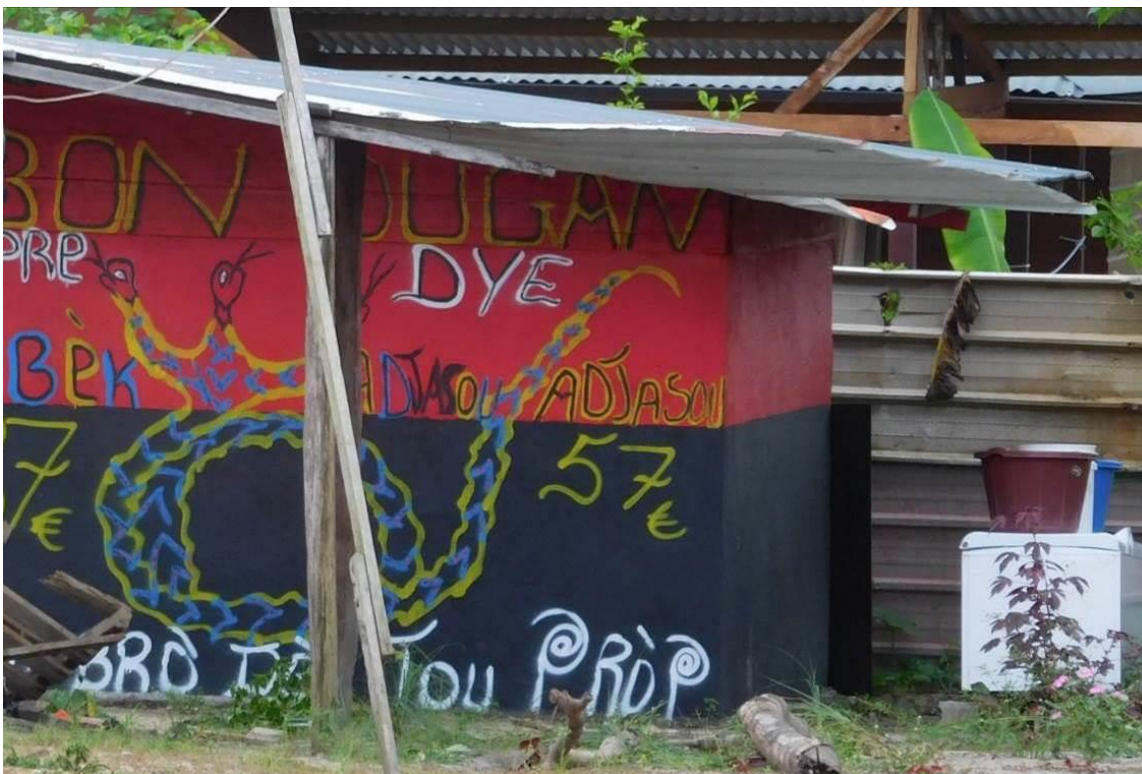 BON OUGAN
PRE DYE
BÈK ADJASOU ADJASOU
7€ 57€
BRÒ TOU PRÒP